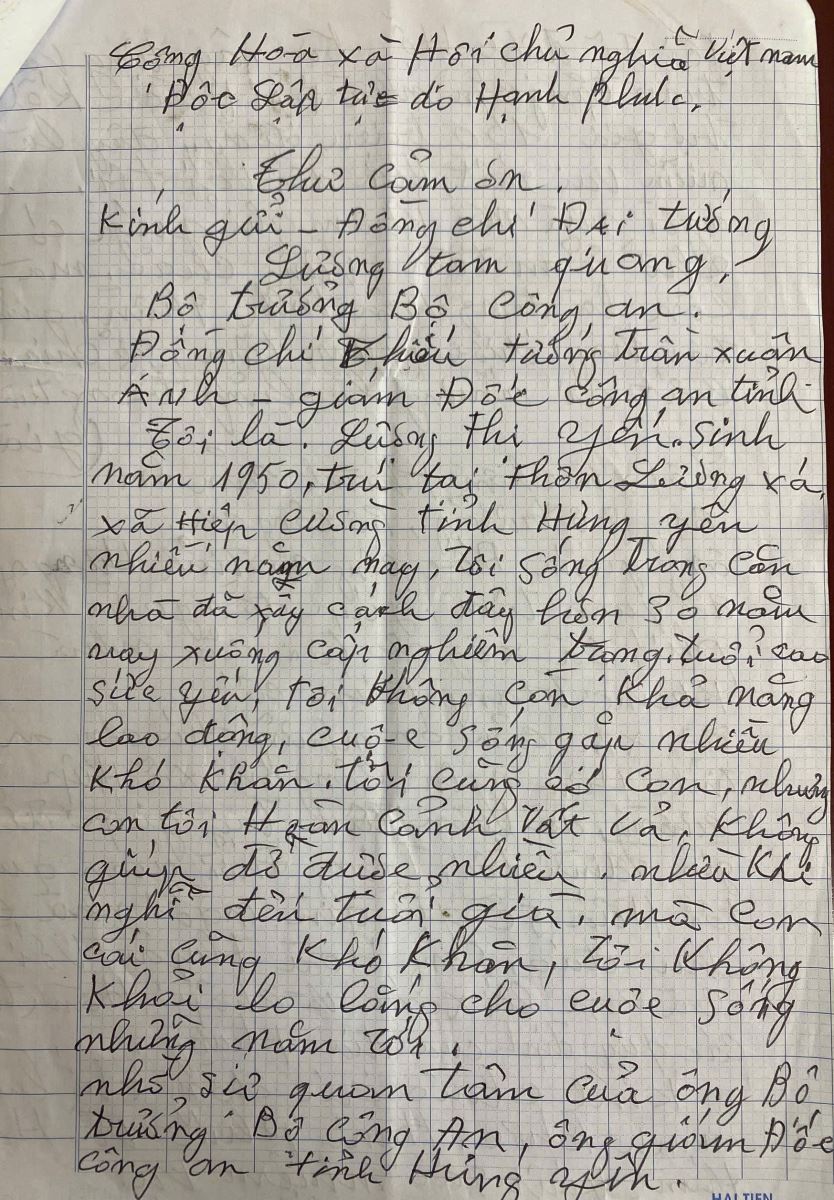 Cộng Hoà xã Hội chủ nghĩa Việt nam
Độc Lập tự do Hạnh phúc.
Thư cảm ơn.
Kính gửi - Đồng chí Đại tướng
Lương tam quang,
Bộ trưởng Bộ Công an.
Đồng chí Thiếu tướng Trần xuân
Ánh - giám Đốc công an tỉnh
Tôi là. Lương Thị yến. sinh
năm 1950, trú tại thôn Lương xá,
xã Hiệp cường tỉnh Hưng yên
nhiều năm nay, tôi sống trong căn
nhà đã xây cách đây hơn 30 năm
nay xuống cấp nghiêm trọng. tuổi cao
sức yếu, tôi không còn khả năng
lao động, cuộc sống gặp nhiều
khó khăn. tôi cũng có con, nhưng
con tôi Hoàn cảnh vất vả, không
giúp đỡ được nhiều. nhiều khi
nghĩ đến tuổi già. mà con
cái cũng khó khăn, tôi không
khỏi lo lắng cho cuộc sống
những năm tới.
nhờ sự quan tâm của ông Bộ
trưởng Bộ công An, ông giám Đốc
công an tỉnh Hưng yên.
HẢI TIẾN